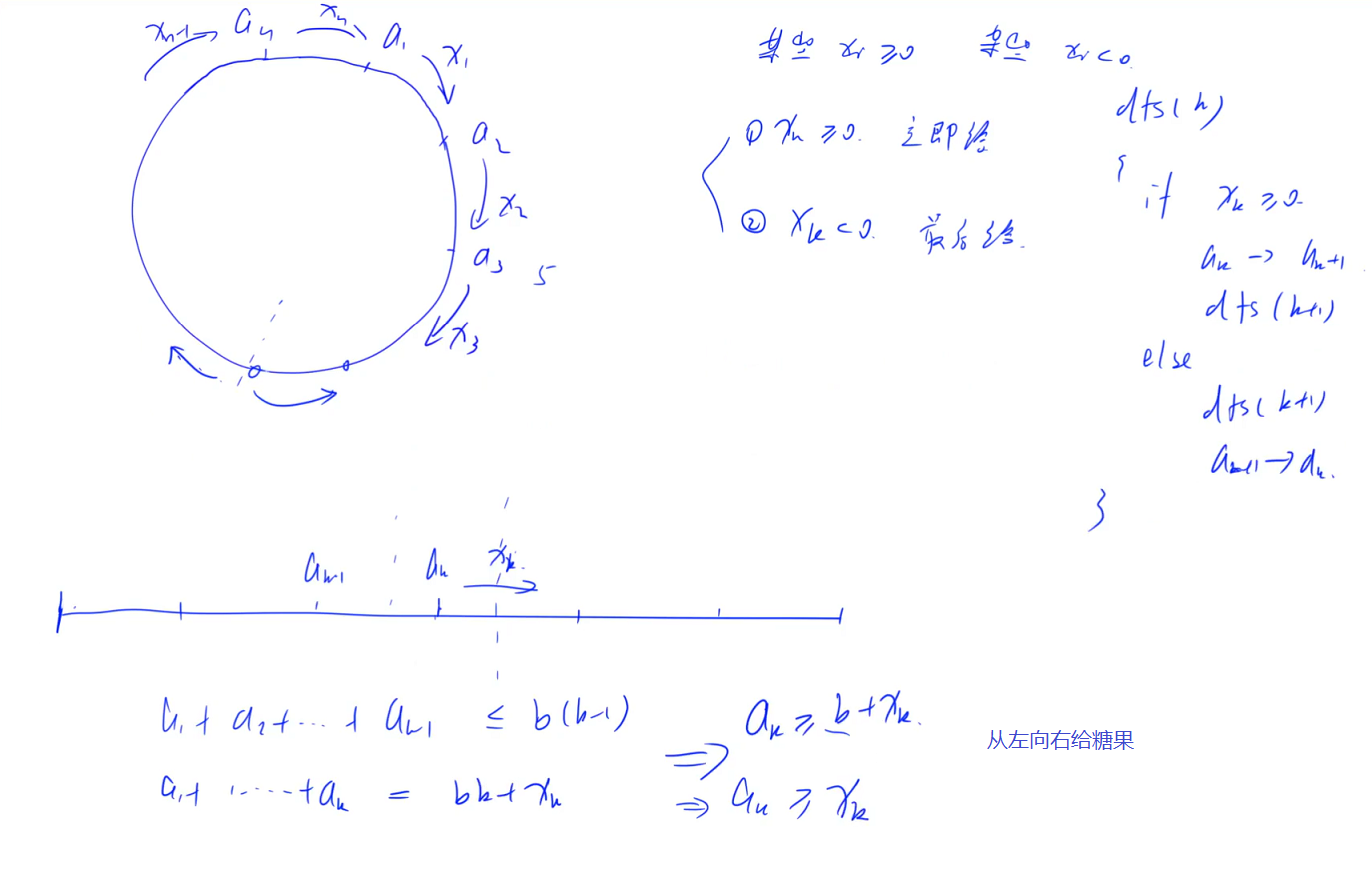 xₙ₋₁ aₙ xₙ a₁ x₁
a₂
x₂
a₃ 5
x₃
某些 xᵢ ≥ 0 某些 xᵢ < 0
① xₖ ≥ 0. 立即给
② xₖ < 0. 最后给.
dfs(k)
{
if xₖ ≥ 0.
aₖ → aₖ₊₁
dfs(k+1)
else
dfs(k+1)
aₖ₊₁ → aₖ.
}
aₖ₋₁ aₖ xₖ.
a₁ + a₂ + ... + aₖ₋₁ ≤ b(k-1)
⇒ aₖ ≥ b + xₖ.
a₁ + ...... + aₖ = bk + xₖ
⇒ aₖ ≥ xₖ
从左向右给糖果